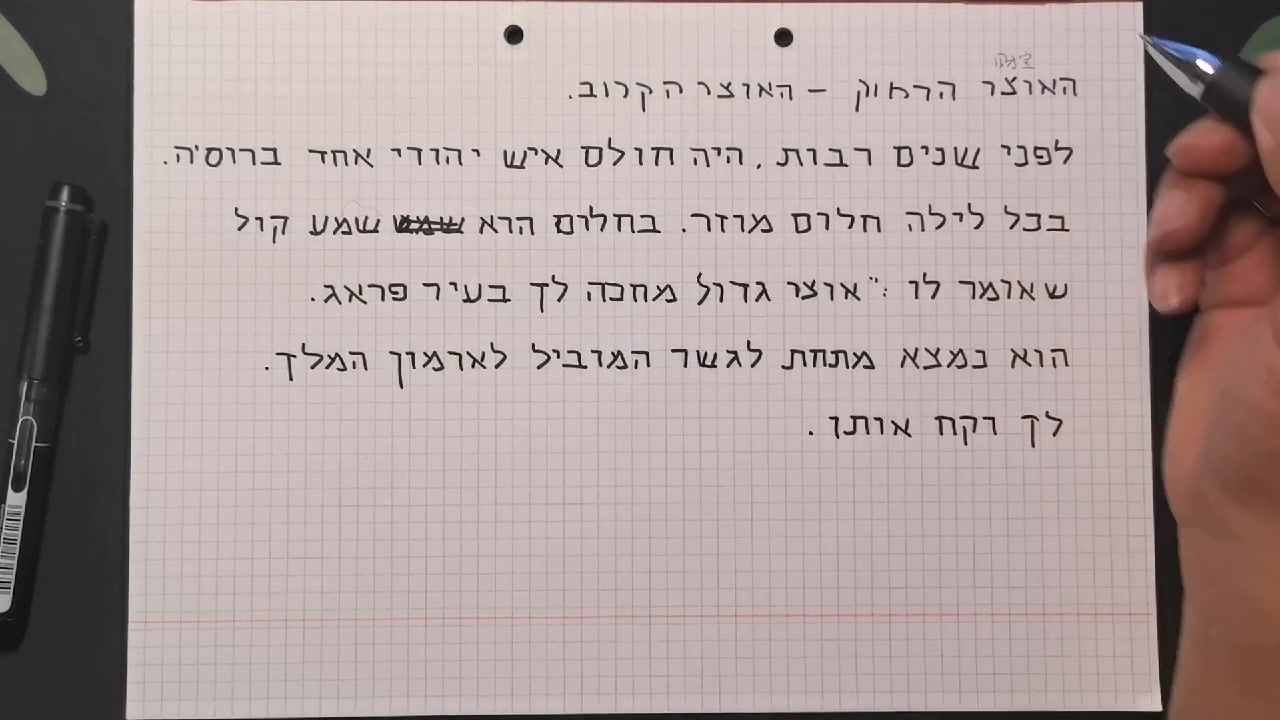 האוצר הרחוק – האוצר הקרוב.
לפני שנים רבות, היה חולם איש יהודי אחד ברוסיה.
בכל לילה חלום מוזר. בחלום הוא שמע קול
שאומר לו :"אוצר גדול מחכה לך בעיר פראג.
הוא נמצא מתחת לגשר המוביל לארמון המלך.
לך וקח אותו.